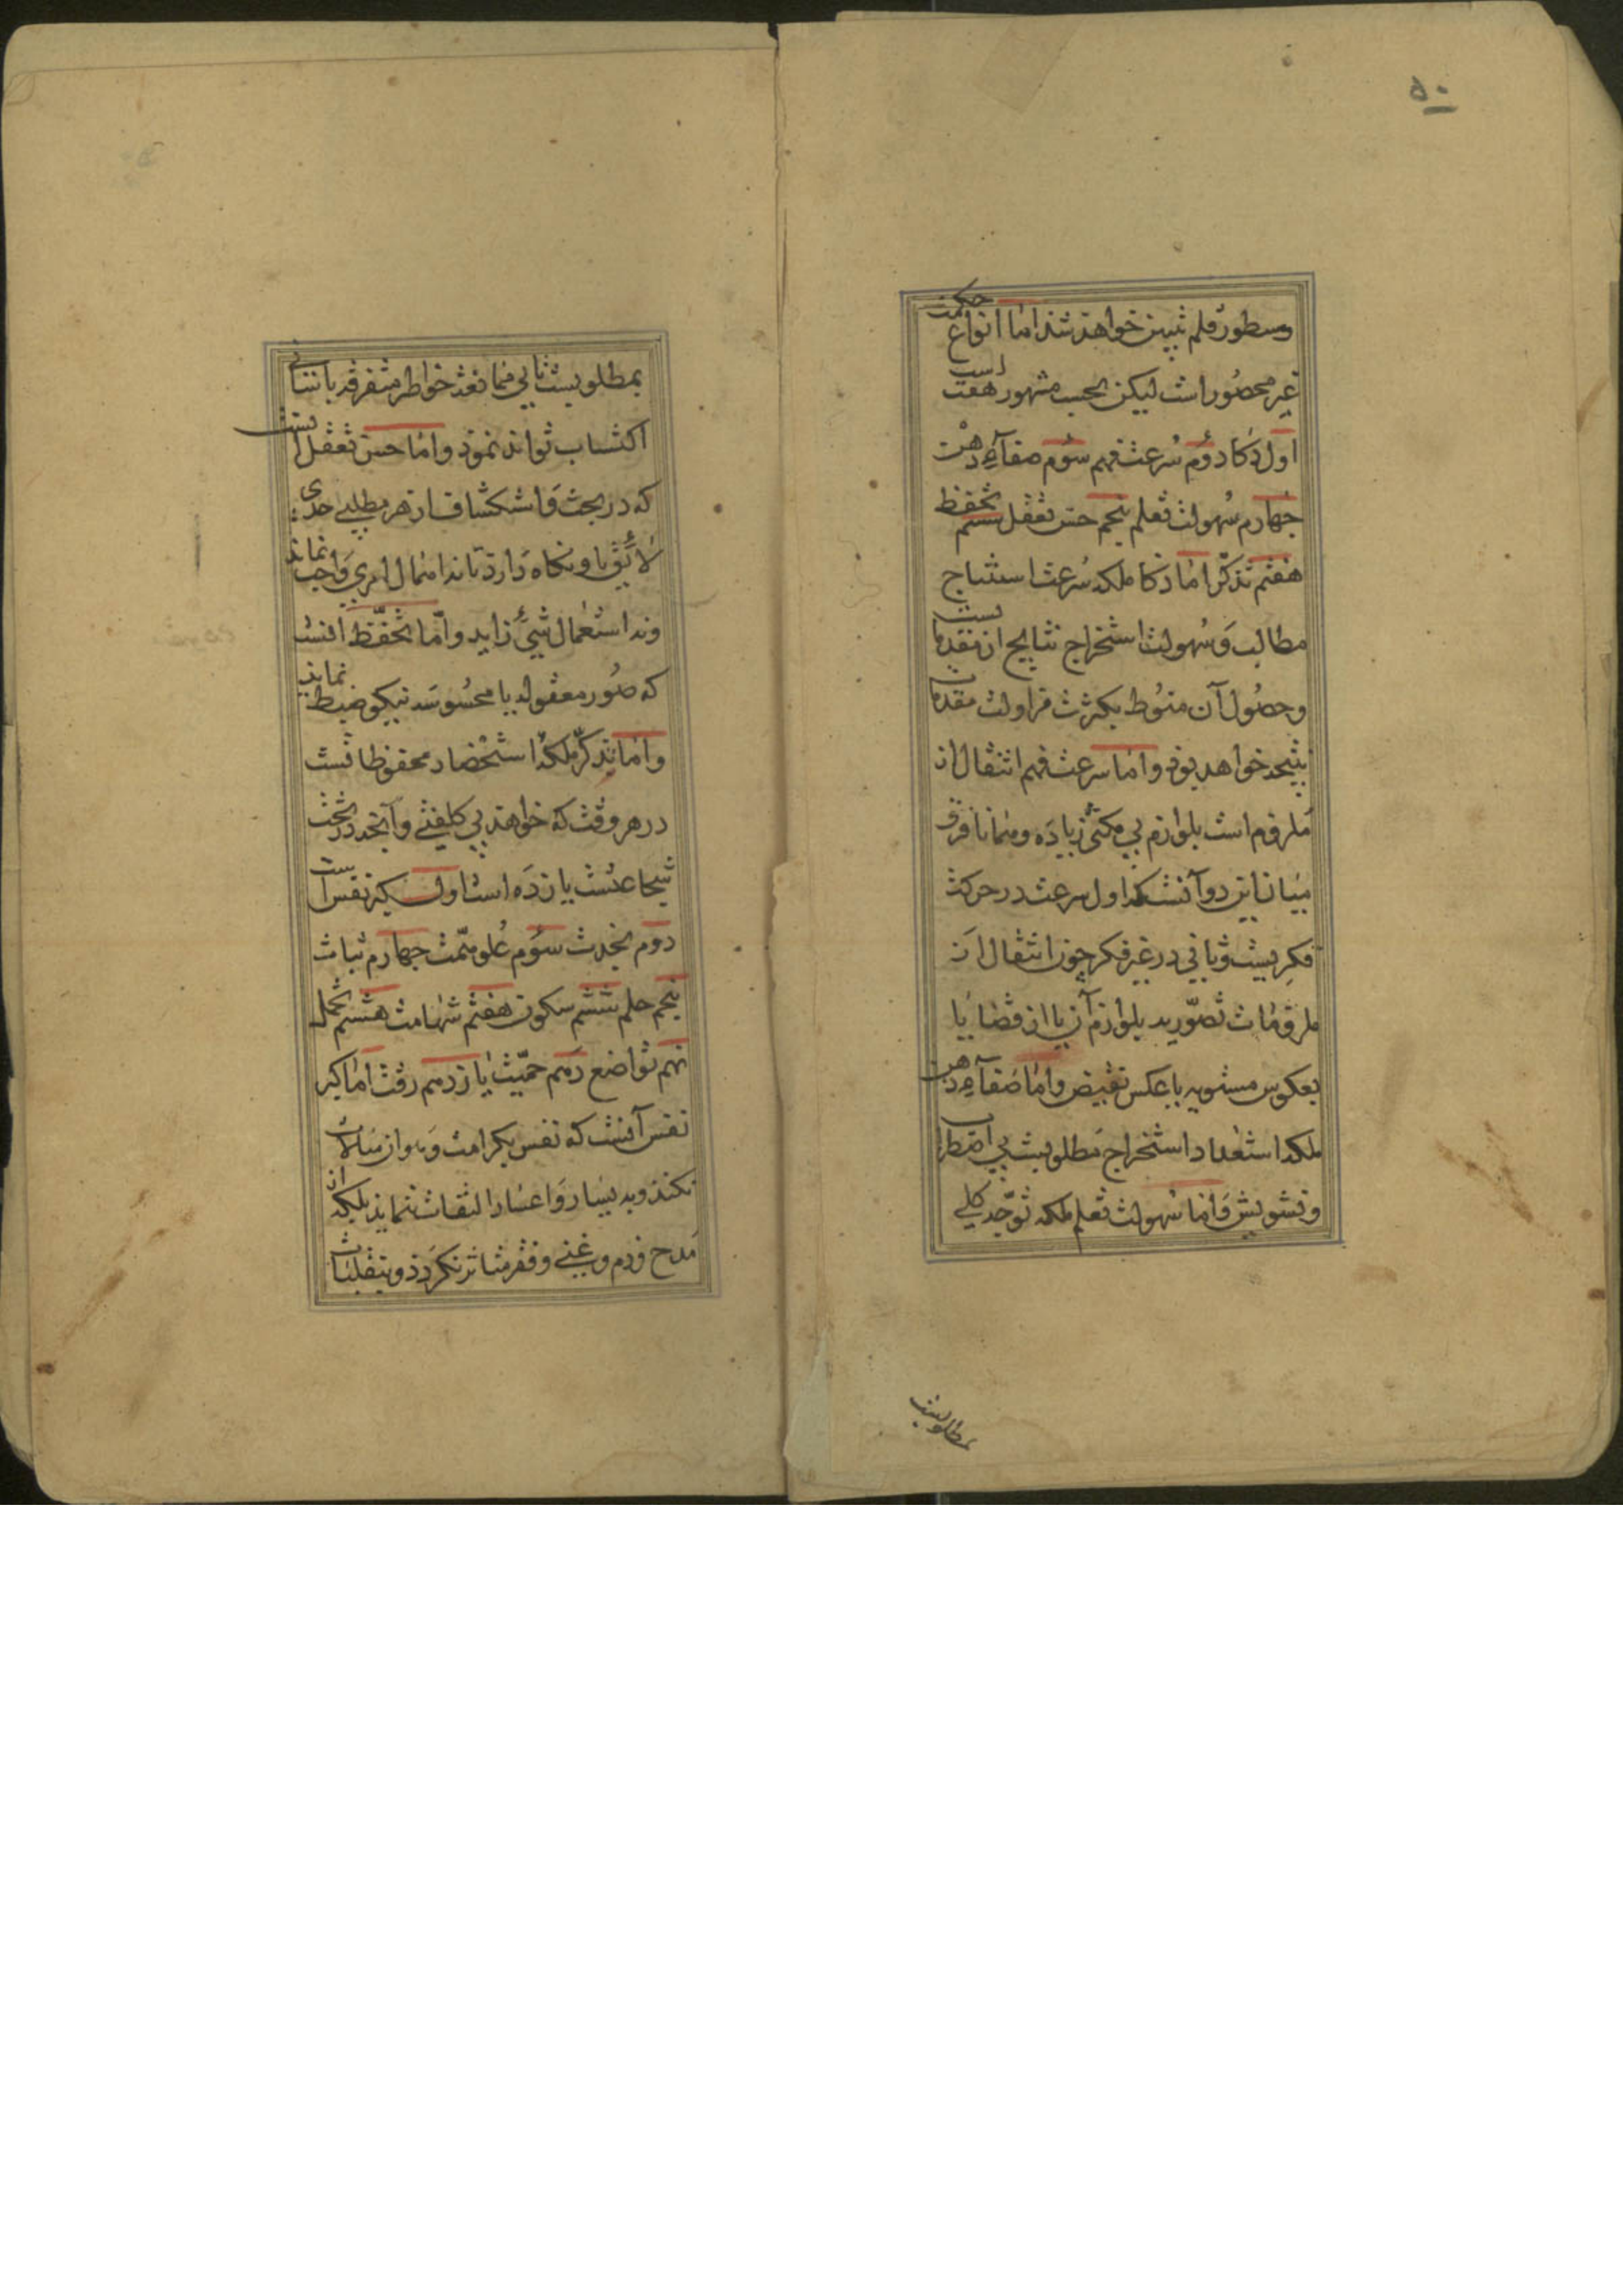 ۵۰
مسطور قلم تبیین خواهد شد اما انواع حکمت
غیر محصور است لیکن بحسب مشهور هفت است
اول ذکا دوم سرعت فهم سوم صفآء ذهن
چهارم سهولت تعلم پنجم حسن تعقل ششم تحفظ
هفتم تذکر اما ذکا ملکه سرعت استنتاج
مطالب و سهولت استخراج نتایج از مقدماتست
و حصول آن منوط بکثرت مزاولت مقدمات
نتیجه خواهد بود و اما سرعت فهم انتقال از
ملزوم است بلوازم بی مکثی زیاده و همانا فرق
میان این دو آنست که اول سرعت در حرکت
فکریست و ثانی در غیر فکر چون انتقال از
ملزومات تصوریه بلوازم آن یا از قضایا
بعکوس مستویه یا عکس نقیض و اما صفآء ذهن
ملکه استعداد استخراج مطلوبست بی اضطراب
و تشویش و اما سهولت تعلم ملکه توجه کلی
بمطلوبست
بمطلوبست تا بی ممانعت خواطر متفرقه باسانی
اکتساب تواند نمود و اما حسن تعقل انست
که در بحث و استکشاف از هر مطلبی حدی
لایق با و نگاه دارد تا نه اهمال امری واجب نماید
و نه استعمال شیئ زاید و اما تحفظ انست
که صور معقوله یا محسوسه نیکو ضبط نماید
و اما تذکر ملکه استحضار محفوظاتست
در هر وقت که خواهد بی کلفتی و آنچه در تحت
شجاعتست یازده است اول کبر نفس است
دوم نجدت سوم علو همت چهارم ثبات
پنجم حلم ششم سکون هفتم شهامت هشتم تحمل
نهم تواضع دهم حمیت یازدهم رقت اما کبر
نفس آنست که نفس بکرامت و هوان مبالات
نکند و به یسار و اعسار التفات ننماید بلکه از
مدح و ذم و غنی و فقر متاثر نگردد و بتقلبات